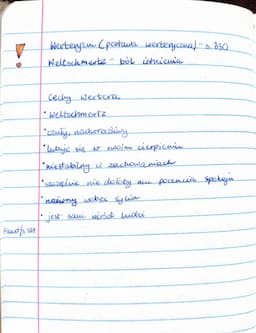 Werteryzm (postawa werteryczna) - s. 330
Weltschmertz - ból istnienia
Cechy Wertera
• weltschmertz
• czuły, nadwrażliwy
• lubuje się w swoim cierpieniu
• niestabilny w zachowaniach
• szczęście nie dałoby mu poczucia spokoju
• naiwny wobec życia
• jest sam wśród ludzi